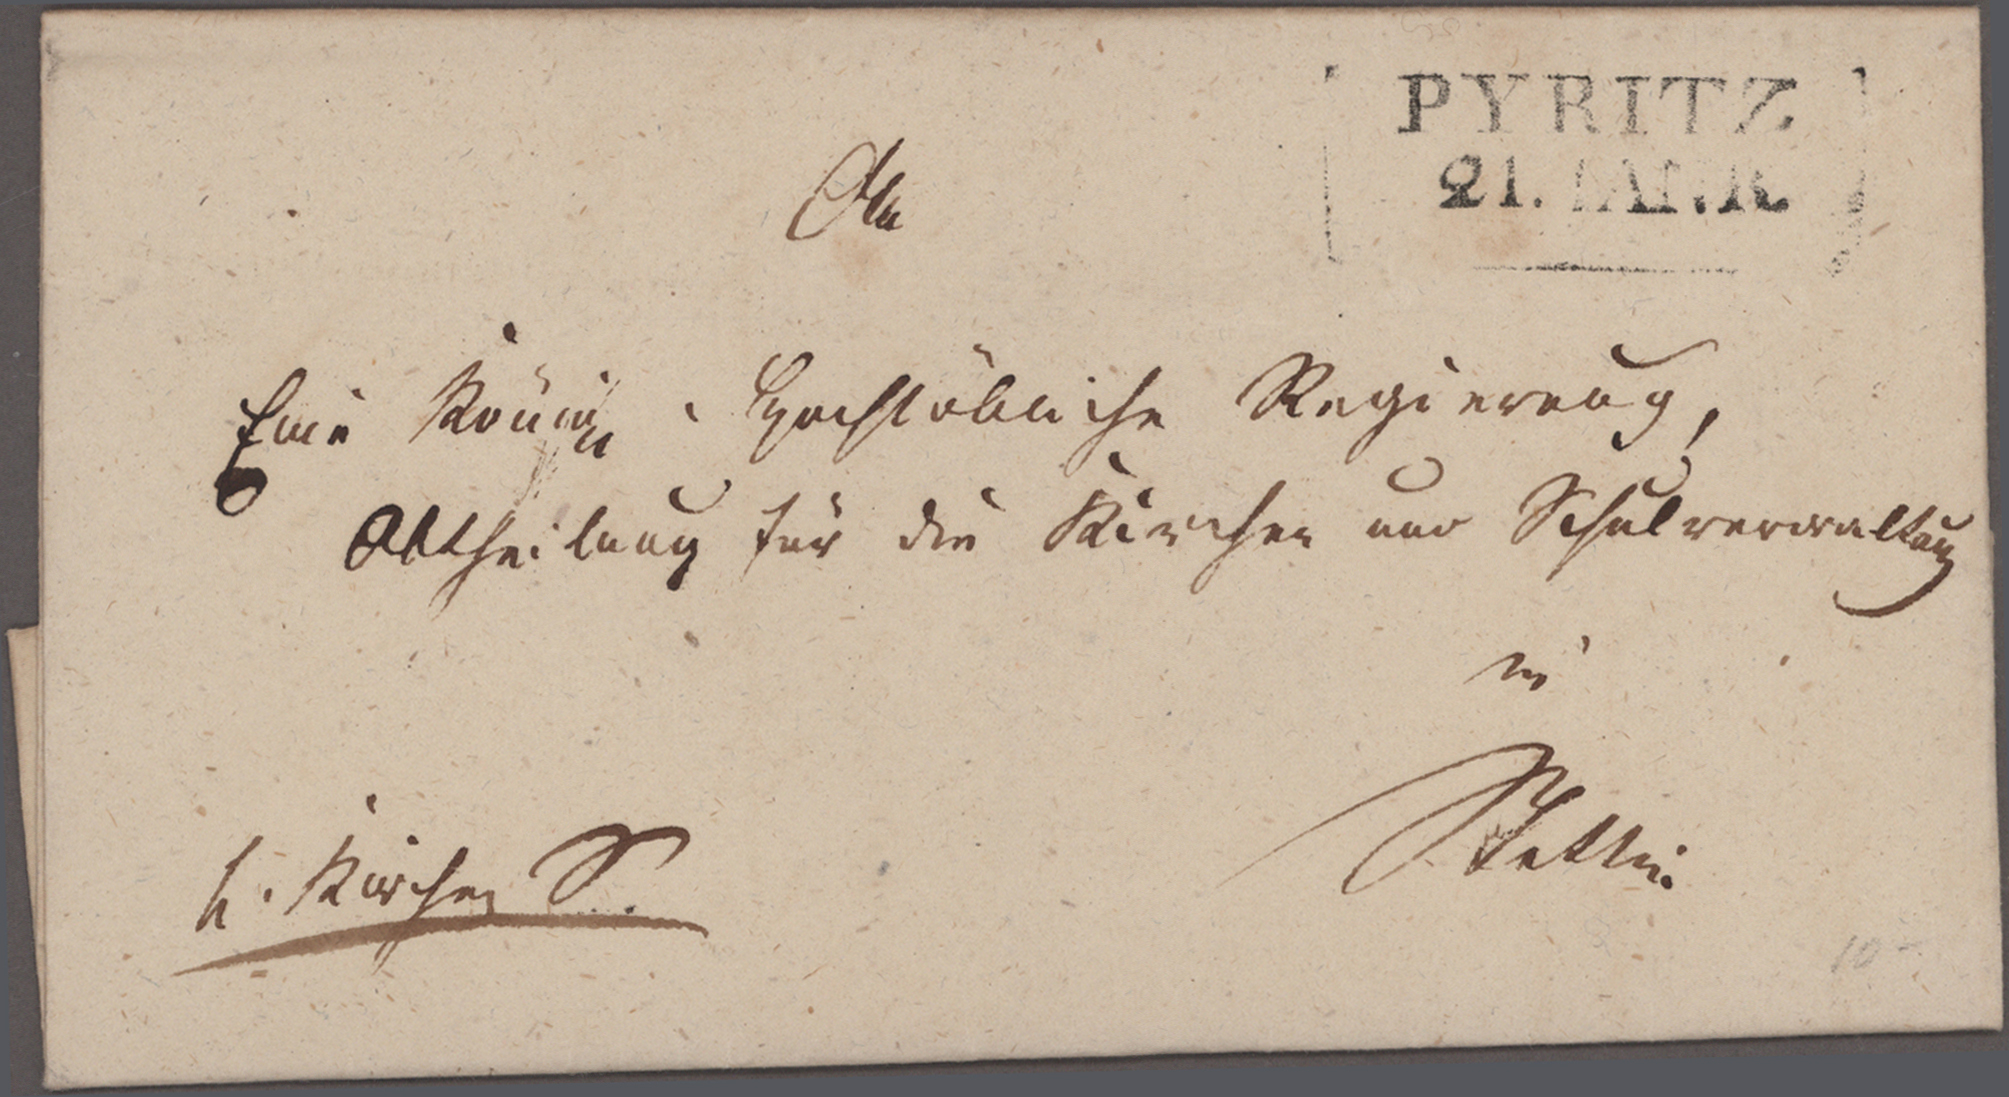 PYRITZ
21. JANR.
An
Eine Königl. Hochlöbliche Regierung,
Abtheilung für die Kirchen und Schulverwaltung
in
Stettin.
h. Kirchen S.
10-